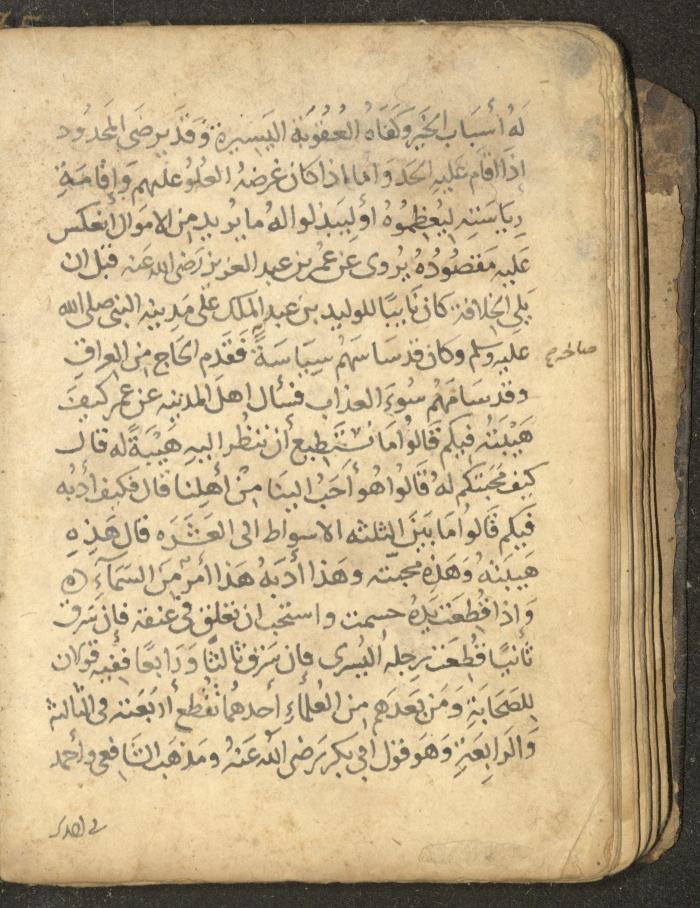 لَهُ أَسبَاب الخَير وَكفَاهُ العُقوُبَة اليَسِيرة وَقَد يرضَى المَحدُود
إذَا اقام عَليهِ الحَد وَامَا اذا كان غرضهُ العُلوُ عليهم وَإقامَةِ
رِيَاسَتِهِ ليُعَظِموُهُ أو ليَبذلوا لهُ ما يُريد مِن الاموَال انعكس
عَليهِ مَقصُودُهُ يُروى عن عُمر بن عبد العزيز رَضى الله عَنه قَبل ان
يَلى الخِلافة كان نَايبًا للوليد بن عبد الملك على مَدينةِ النبى صلى الله
عليه وسلم وكان قد سَاسَهُم سِيَاسَةً فَقَدم الحَاج مِن العِراق
صالحه ح
وقد سَامَهُم سُوءَ العذاب فسأل اهلَ المدينه عن عمر كيفَ
هَيبَتهُ فيكم قَالوُا مَا نستَطِيع أن ننظر اليهِ هَيْبَةً له قال
كيف مَحبَتكم لهُ قَالوُا هُو أحَبُ الينَا مِنْ أهلِنا قال فكيف أدَبُه
فيكم قَالوُا مَا بَيْنَ الثلثه الاسواط الى العَشَرَه قال هَذِهِ
هَيبَتهُ وَهَذِهِ محبّته وهَذا أدَبهُ هَذا أمرٌ مِن السَمَآءِ ه
وَاذا قُطِعَت يَدُهُ حسمت واستحب ان تعلق فى عنقه فإن سَرق
ثانيًا قُطِعَت رِجله اليُسرى فإن سَرق ثالثًا وَرَابعًا ففِيهِ قولان
لِلصَحَابَةِ وَمَن بَعدَهم مِن العُلمآءِ أحدهُما تُقطع أربَعَته فى الثالثة
وَالرَابِعَةِ وَهوَ قول ابى بكر رَضى الله عَنهُ ومَذهَب الشَافعى وأحمد
فى احدى